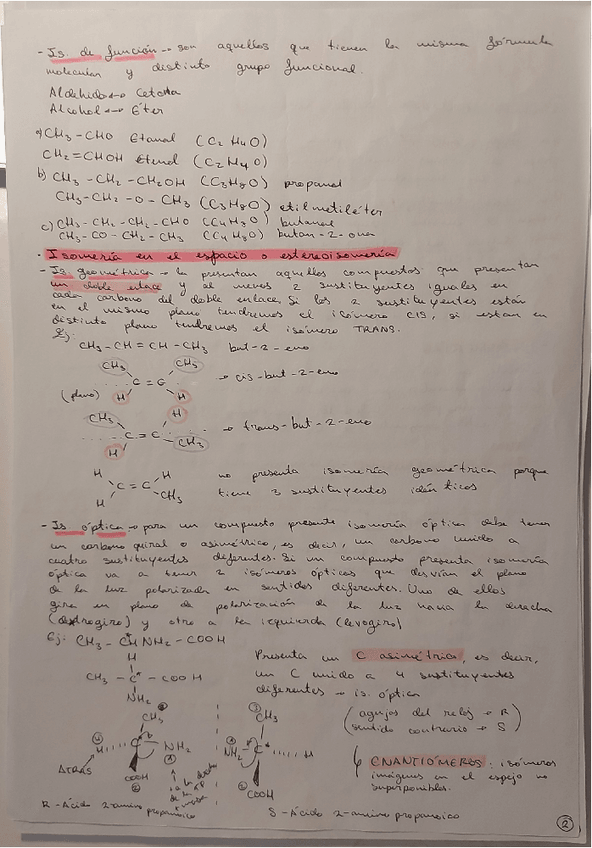 - Is. de función → son aquellos que tienen la misma fórmula
molecular y distinto grupo funcional.
Aldehído ↔ Cetona
Alcohol ↔ Éter
a) CH3 - CHO Etanal (C2H4O)
CH2 = CHOH Etenol (C2H4O)
b) CH3 - CH2 - CH2OH (C3H8O) propanol
CH3 - CH2 - O - CH3 (C3H8O) etilmetiléter
c) CH3 - CH2 - CH2 - CHO (C4H8O) butanal
CH3 - CO - CH2 - CH3 (C4H8O) butan-2-ona
· Isomería en el espacio o estereoisomería
- Is. geométrica → la presentan aquellos compuestos que presentan
un doble enlace y al menos 2 sustituyentes iguales en
cada carbono del doble enlace. Si los 2 sustituyentes están
en el mismo plano tendremos el isómero CIS, si están en
distinto plano tendremos el isómero TRANS.
Ej:
CH3 - CH = CH - CH3 but-2-eno
CH3 CH3
C = C → cis-but-2-eno
(plano) H H
CH3 H
C = C → trans-but-2-eno
H CH3
H H no presenta isomería geométrica porque
C = C tiene 3 sustituyentes idénticos
H CH3
- Is óptica → para un compuesto presente isomería óptica debe tener
un carbono quiral o asimétrico, es decir, un carbono unido a
cuatro sustituyentes diferentes. Si un compuesto presenta isomería
óptica va a tener 2 isómeros ópticos que desvían el plano
de la luz polarizada en sentidos diferentes. Uno de ellos
gira en plano de polarización de la luz hacia la derecha
(dextrogiro) y otro a la izquierda (levogiro)
Ej: CH3 - CHNH2 - COOH
H Presenta un C asimétrico, es decir,
CH3 - C* - COOH un C unido a 4 sustituyentes
NH2 diferentes → is. óptica
CH3 CH3 (agujas del reloj → R
sentido contrario → S)
④ H C NH2 ① ① NH2 C H
ATRÁS COOH ② ② COOH
ENANTIÓMEROS: isómeros
imágenes en el espejo no
superponibles.
R - Ácido 2-amino propanoico S - Ácido 2-amino propanoico
②